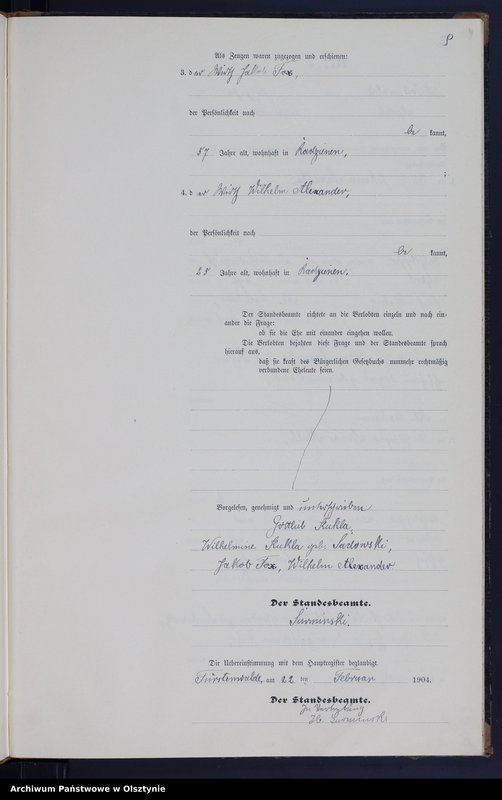 8
Als Zeugen waren zugezogen und erschienen:
3. der Wirth Jakob Fox,
der Persönlichkeit nach
be kannt,
57 Jahre alt, wohnhaft in Radzienen,
;
4. der Wirth Wilhelm Alexander,
der Persönlichkeit nach
be kannt,
28 Jahre alt, wohnhaft in Radzienen.
Der Standesbeamte richtete an die Verlobten einzeln und nach ein-
ander die Frage:
ob sie die Ehe mit einander eingehen wollen.
Die Verlobten bejahten diese Frage und der Standesbeamte sprach
hierauf aus,
daß sie kraft des Bürgerlichen Gesetzbuchs nunmehr rechtmäßig
verbundene Eheleute seien.
Vorgelesen, genehmigt und unterschrieben
Gottlieb Kukla,
Wilhelmine Kukla geb. Sadowski,
Jakob Fox, Wilhelm Alexander
Der Standesbeamte.
Surminski.
Die Uebereinstimmung mit dem Hauptregister beglaubigt.
Fürstenwalde, am 22 ten Februar 1904.
Der Standesbeamte.
In Vertretung
Surminski
Archiwum Państwowe w Olsztynie